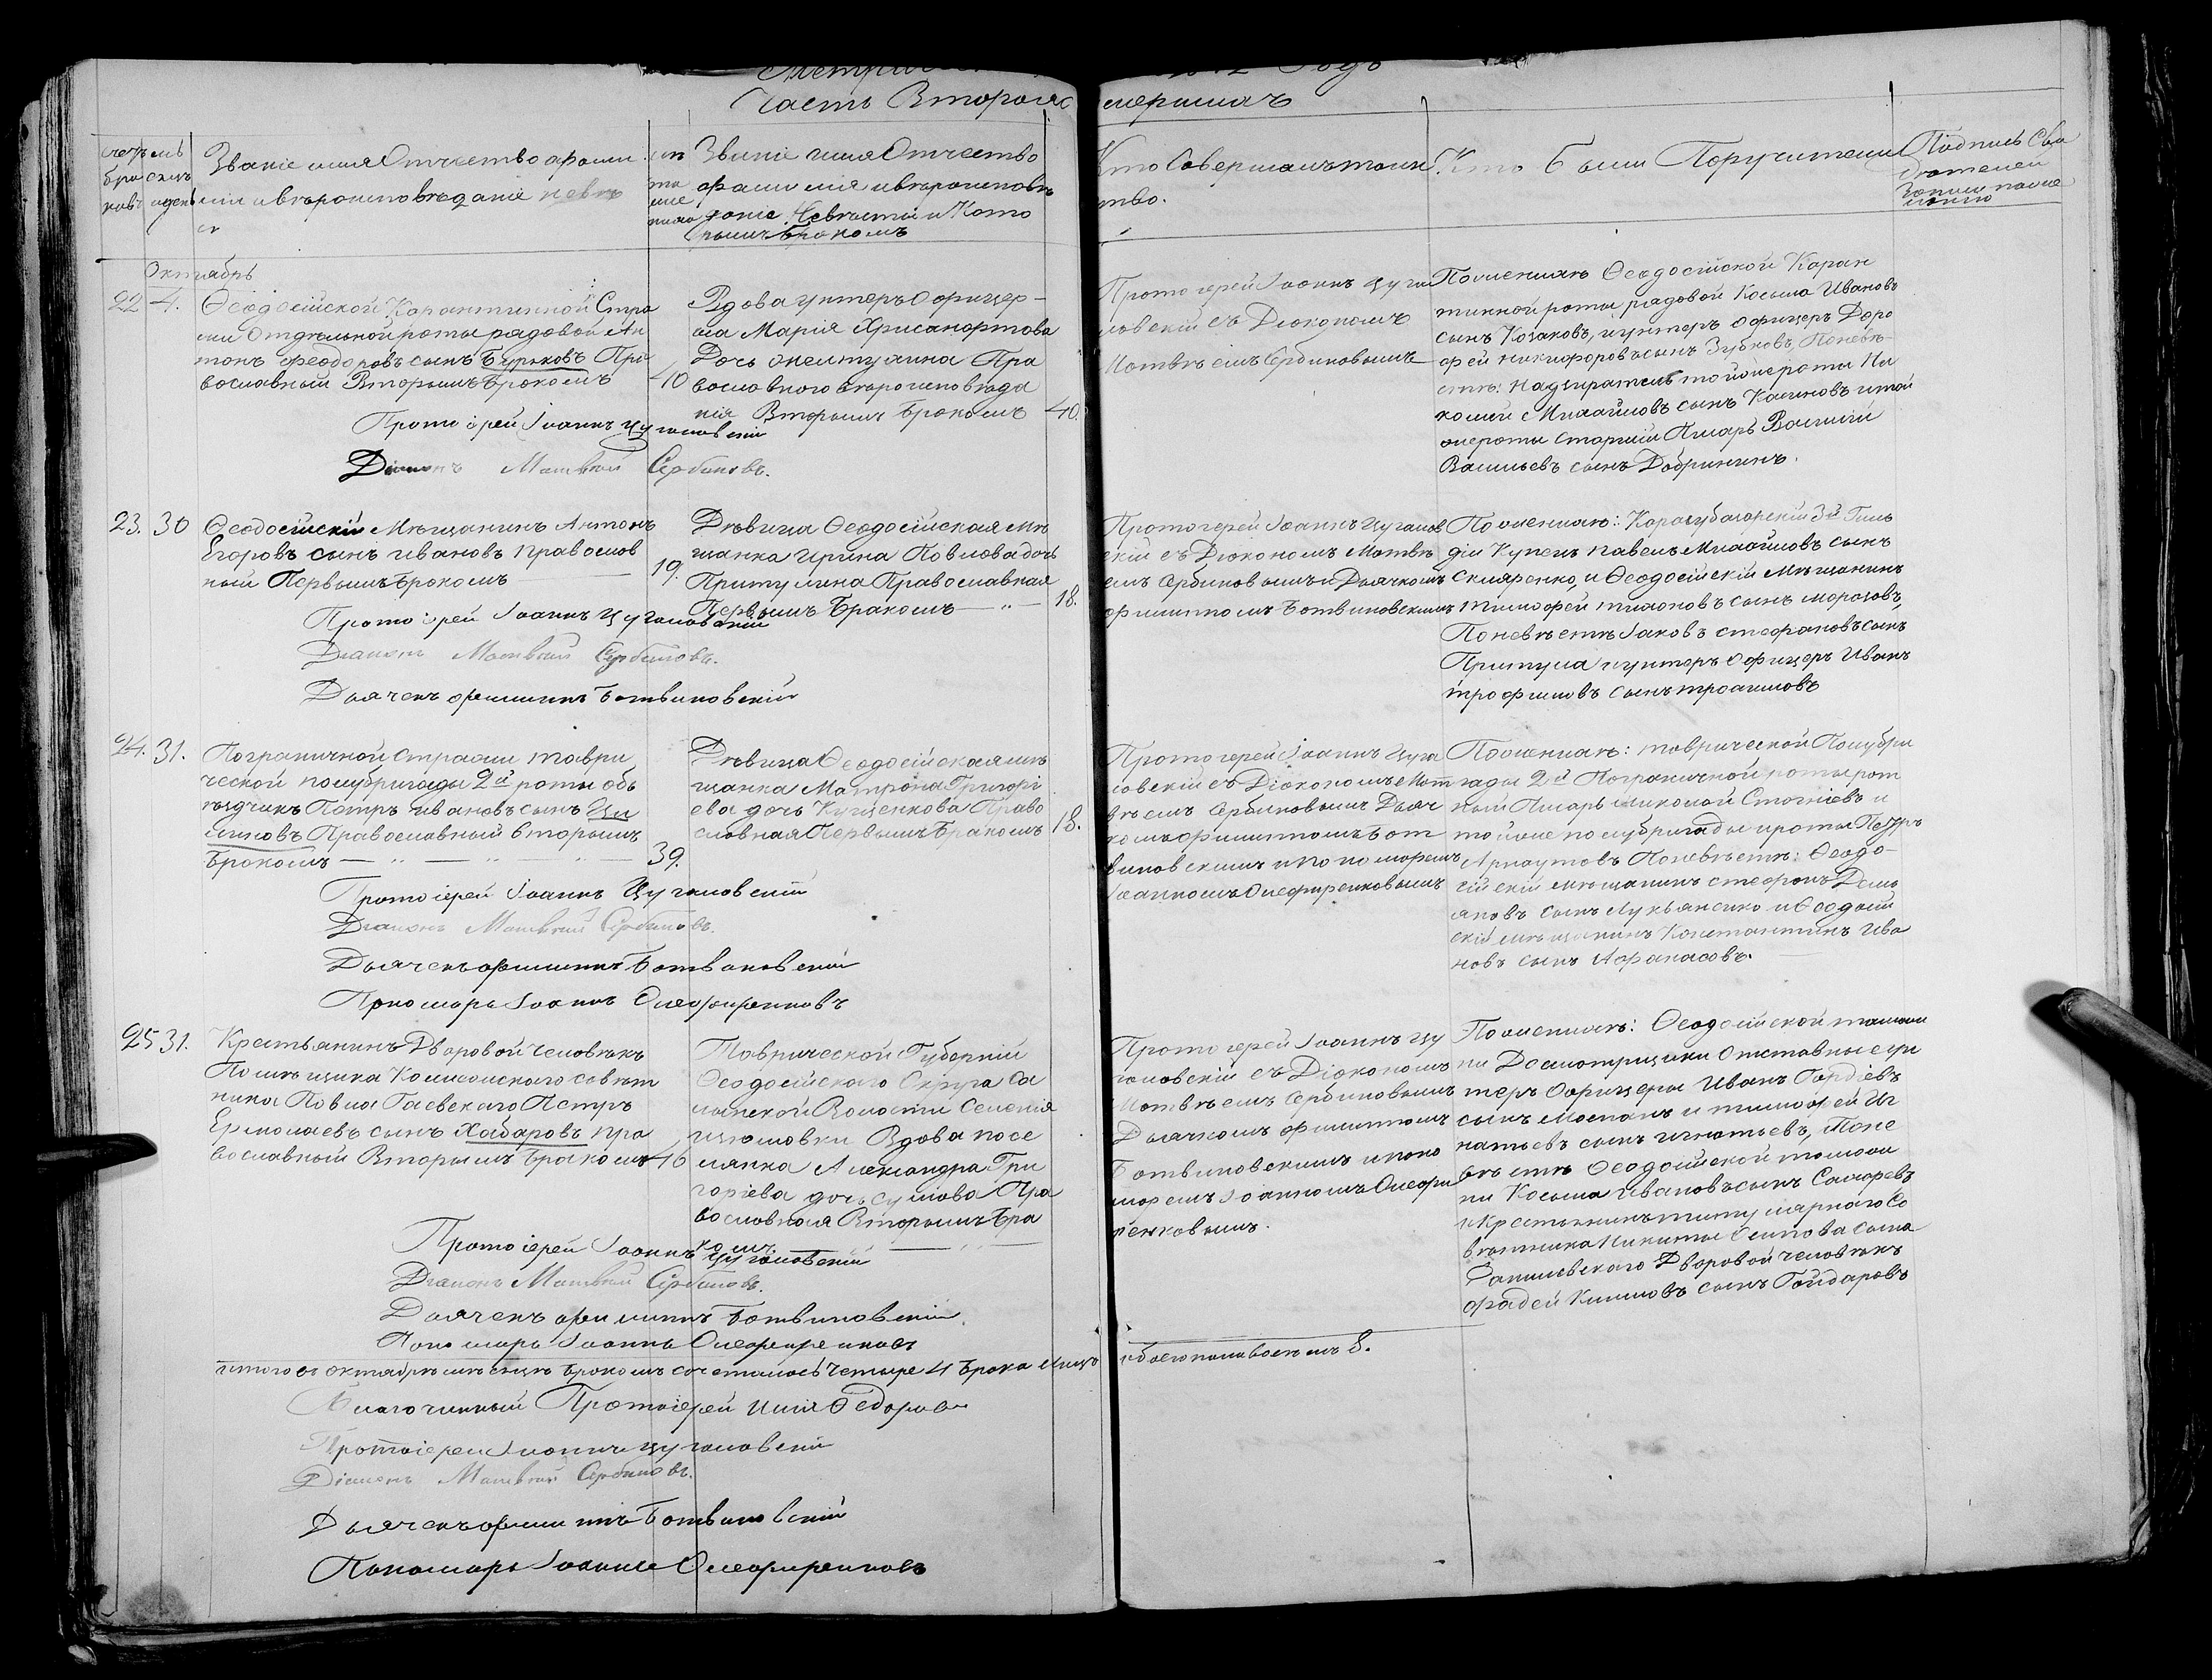 Часть Вторая
счетъ браковъ
Званіе имя Отчество фами
лія и вѣроисповѣданіе
Званіе имя Отчество
фамилія и вѣроисповѣ
даніе Невѣсты и Кото
рымъ бракомъ
Кто Совершалъ таин
ство.
Кто были Поручители
Октябрь
22 4. Ѳеодосійской Карантинной Стра
жи Отдѣльной роты рядовой Ан
тонъ Феодоровъ сынъ Бурковъ Пра
вославный Вторымъ бракомъ 40
Протоіерей Іоаннъ Цугановскій
Діаконъ Матвѣй Сербиновъ.
Вдова унтеръ Офицер-
ша Марія Хрисанфова
Дочь Православного вѣроисповѣда
нія Вторымъ бракомъ 40.
Протоіерей Іоаннъ Цуга
новскій съ Діакономъ
Матвѣемъ Сербиновымъ
По женихѣ Ѳеодосійской Каран
тинной роты рядовой Косьма Ивановъ
сынъ Козаковъ, и унтеръ Офицеръ Доро
фей Никифоровъ сынъ Зубковъ, По невѣ-
стѣ: Надзиратель той же роты Ни
колай Михайловъ сынъ Калиновъ и той
же роты старшій Писарь Василій
Васильевъ сынъ Добрынинъ.
23. 30 Ѳеодосійскій Мѣщанинъ Антонъ
Егоровъ сынъ Ивановъ Православ
ный Первымъ бракомъ 19.
Протоіерей Іоаннъ Цугановскій
Діаконъ Матвѣй Сербиновъ.
Дьячекъ Филиппъ Ботвиновскій
Дѣвица Ѳеодосійская мѣ
щанка Ирина Павлова дочь
Притулина Православная
Первымъ бракомъ 18.
Протоіерей Іоаннъ Цуганов
скій съ Діакономъ Матвѣ
емъ Сербиновымъ и Дьячкомъ
Филиппомъ Ботвиновскимъ
По женихѣ: Карасубазарскій 3й Гиль
діи Купецъ Павелъ Михайловъ сынъ
Скляренко, и Ѳеодосійскій Мѣщанинъ
Тимофей Тихоновъ сынъ Морозовъ,
По невѣстѣ Іаковъ Стефановъ сынъ
Притула и унтеръ Офицеръ Иванъ
Трофимовъ сынъ
24. 31. Пограничной Стражи Таври
ческой полубригады 2й роты объ
ѣздчикъ Петръ Ивановъ сынъ Ци
Православный Вторымъ
бракомъ 39.
Протоіерей Іоаннъ Цугановскій
Діаконъ Матвѣй Сербиновъ.
Дьячекъ Филиппъ Ботвиновскій
Пономарь Іоаннъ Олефиренковъ
Дѣвица Ѳеодосійская мѣ
щанка Матрона Григорі
ева дочь Куценкова Право
славная Первымъ бракомъ 18.
Протоіерей Іоаннъ Цуга
новскій съ Діакономъ Мат
вѣемъ Сербиновымъ Дьяч
комъ Филиппомъ Бот
виновскимъ и пономаремъ
Іоанномъ Олефиренковымъ
По женихѣ: Таврической Полубри
гады 2й Пограничной роты рот
ный Писарь Николай Стогніевъ и
той же полубригады и роты Петръ
Арнаутовъ По невѣстѣ: Ѳеодо-
сійскій мѣщанинъ Стефанъ Демь
яновъ сынъ Лукьяненко и Ѳеодосій
скій мѣщанинъ Константинъ Ива
новъ сынъ Афанасовъ.
25 31. Крестьянинъ Дворовой Человѣкъ
Помѣщика Колежскаго совѣт
ника Павла Гаевскаго Петръ
Ермолаевъ сынъ Хабаровъ Пра
вославный Вторымъ бракомъ 46
Протоіерей Іоаннъ Цугановскій
Діаконъ Матвѣй Сербиновъ.
Дьячекъ Филиппъ Ботвиновскій
Пономарь Іоаннъ Олефиренковъ
Таврической Губерніи
Ѳеодосійскаго Округа Са
лынской Волости Селенія
Вдова посе
лянка Александра Гри
горіева дочь Православная Вторымъ бра
комъ
Протоіерей Іоаннъ Цу
гановскій съ Діакономъ
Матвѣемъ Сербиновымъ
Дьячкомъ Филиппомъ
Ботвиновскимъ и поно
маремъ Іоанномъ Олефи
ренковымъ.
По женихѣ: Ѳеодосійской таможни
Досмотрщики Отставные ун
теръ Офицеры Иванъ Гордіевъ
сынъ и Тимофей Иг
натьевъ сынъ Игнатьевъ, По не
вѣстѣ Ѳеодосійской таможни
Косьма Ивановъ сынъ
и Крестьянинъ титулярного Со
вѣтника Никиты Осипова сына
Дворовой Человѣкъ
Фадей Климовъ сынъ Гайдаровъ
Итого въ октябрѣ мѣсяцѣ бракомъ сочеталось Четыре 4 брака лицъ обоего пола восемь 8.
Благочинный Протоіерей Илія Ѳедоровъ
Протоіерей Іоаннъ Цугановскій
Діаконъ Матвѣй Сербиновъ.
Дьячекъ Филиппъ Ботвиновскій
Пономарь Іоаннъ Олефиренковъ